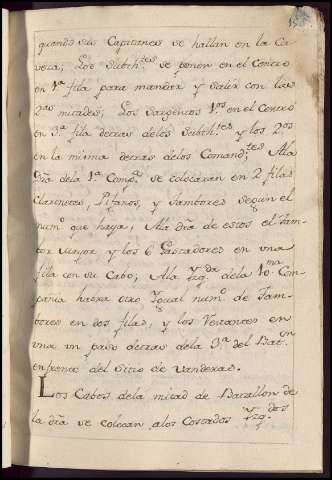 quando sus Capitanes se hallan en la Ca-
veza; Los Subth.tes se ponen en el Centro
en 1.a fila para mandar y salir con las
2.as mitades; Los Sargentos 1.os en el Centro
en 3.a fila detras delos Subth.tes y los 2.os
en la misma detras delos Comand.tes Ala
Dra dela 1.a Comp.a se colocaran en 2 filas
Clarinetes, Pifanos, y Tambores segun el
num.o que haya, Ala dra de estos el Tam-
bor mayor y los 6 Gastadores en una
fila con su Cabo; Ala Yzq.da dela 10.ma Com-
pania habra otro Ygual num.o de Tam-
bores en dos filas, y los restantes en
una un paso detras dela 3.a del Bat.on
enfrente del sitio de vanderas.
Los Cabos dela mitad de Batallon de
la dra se colocan alos Costados Yzq.dos